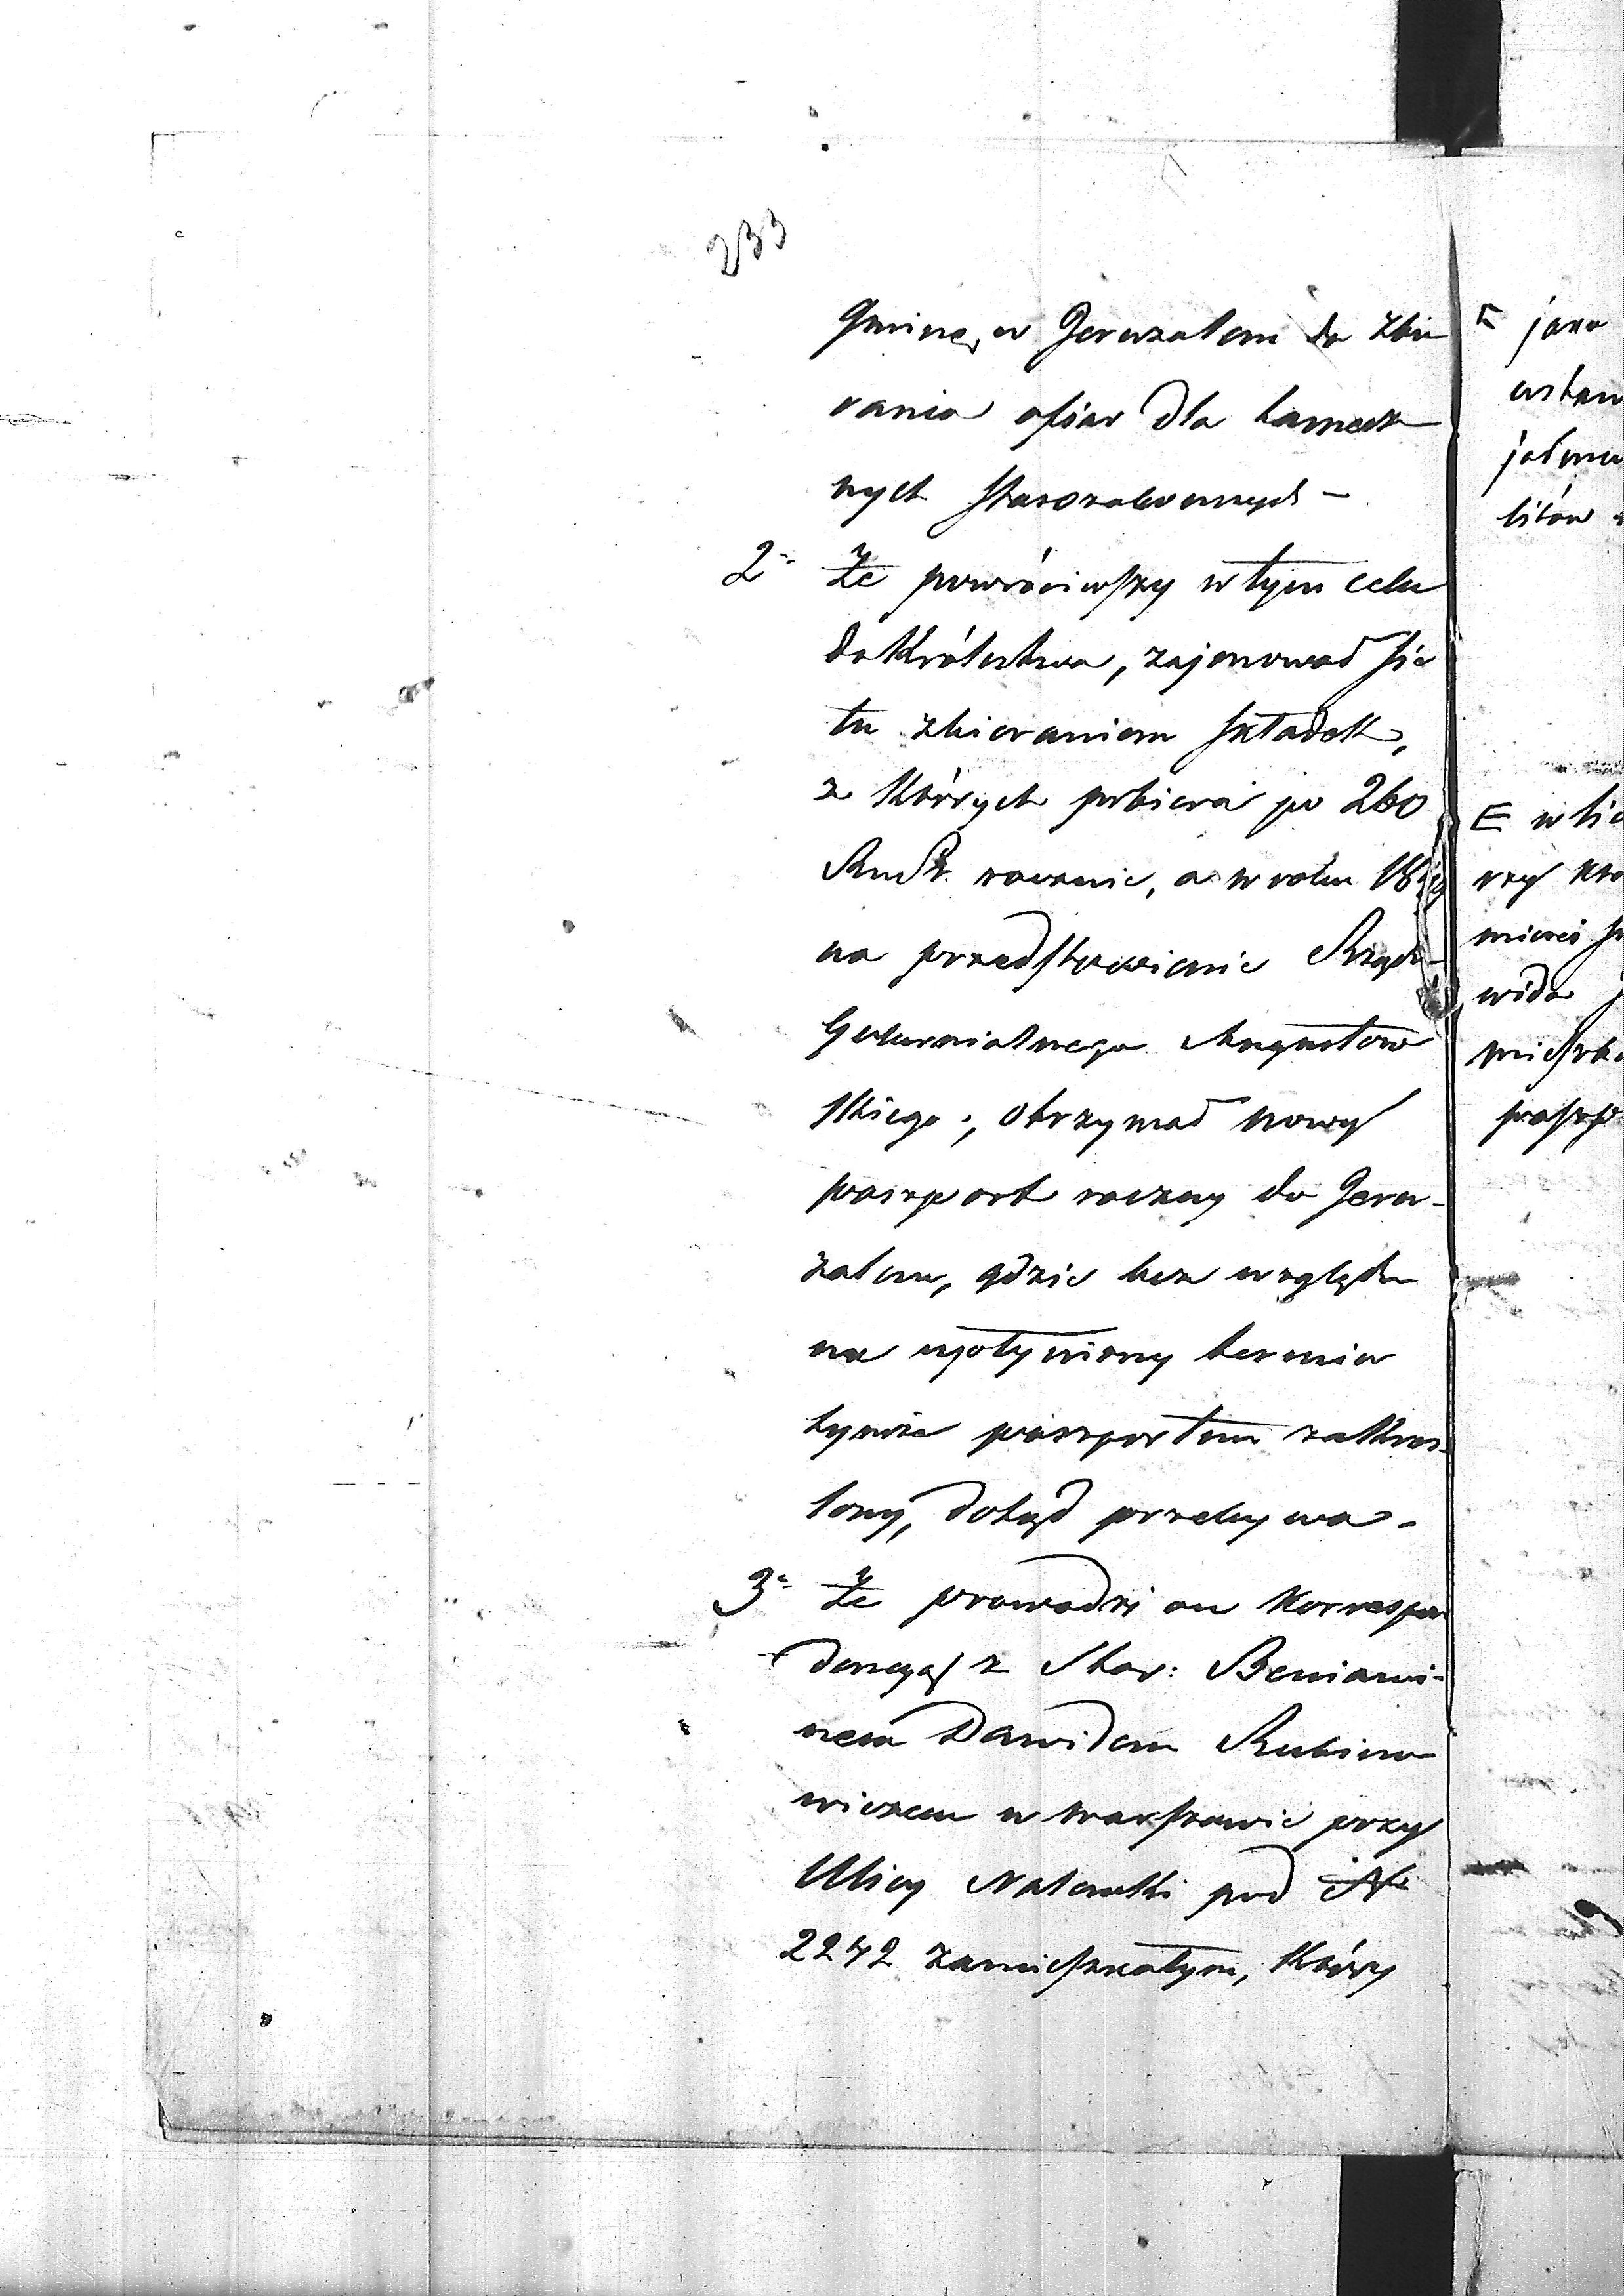 233
Gminę w Jeruzalem do zbie
rania ofiar dla tamecz
nych Starozakonnych –
2° Że powróciwszy w tym celu
do Królestwa, zajmował się
tu zbieraniem składek,
z których pobiera po 260
Rsr. rocznie, a w roku
na przedstawienie Rządu
Gubernialnego Augustow
skiego, otrzymał nowy
paszport roczny do Jeru-
zalem, gdzie bez względu
na upłyniony termin
tymże paszportem zakreś-
lony, dotąd przebywa.
3° Że prowadzi on korrespon
dencyą z Star: Beniami-
nem Dawidem Rubino
wiczem w Warszawie przy
Ulicy Nalewki pod N
2242 zamieszkałym, który
jako
jednem
litów
E w
rzy
wida